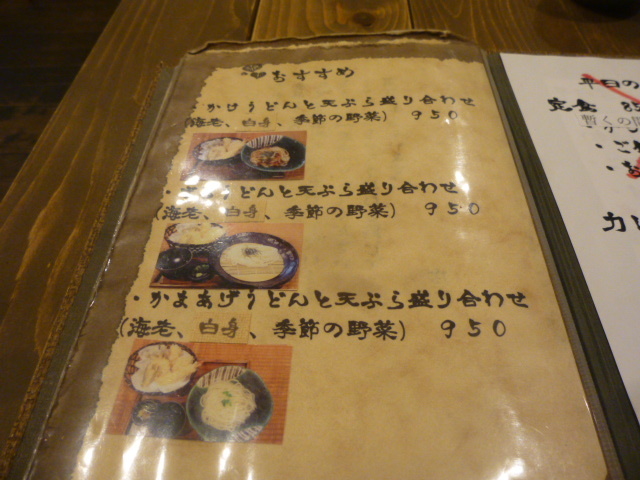 おすすめ
・かけうどんと天ぷら盛り合わせ
(海老、白身、季節の野菜) 950
うどんと天ぷら盛り合わせ
(海老、白身、季節の野菜) 950
・かまあげうどんと天ぷら盛り合わせ
(海老、白身、季節の野菜) 950
平日の
定食